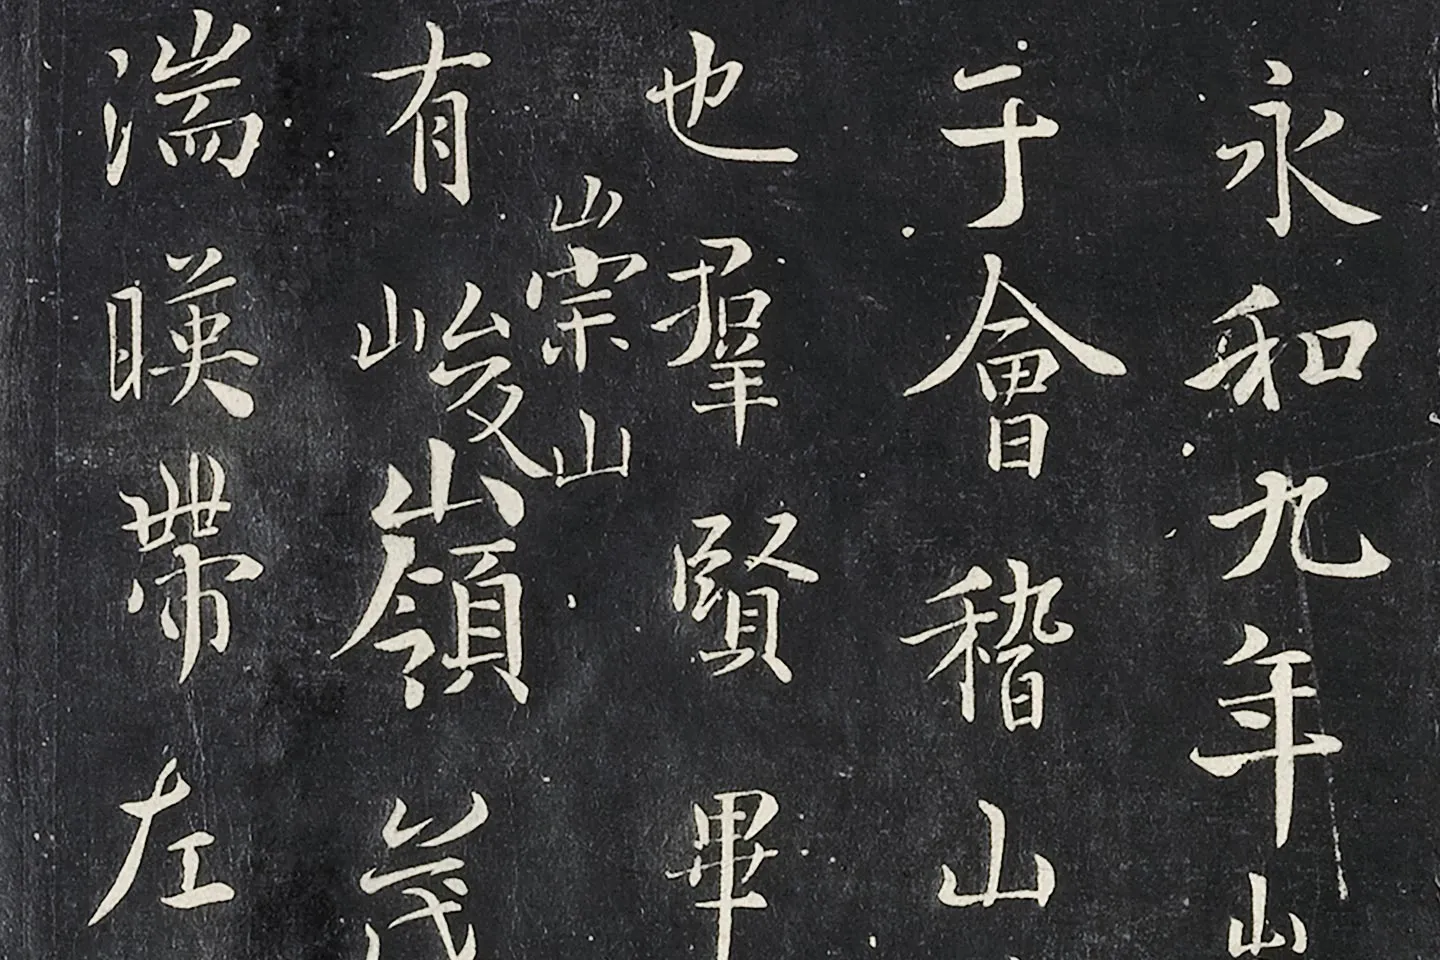 永和九年
于會稽山
也羣賢畢
崇山
有峻嶺茂
湍暎帶左